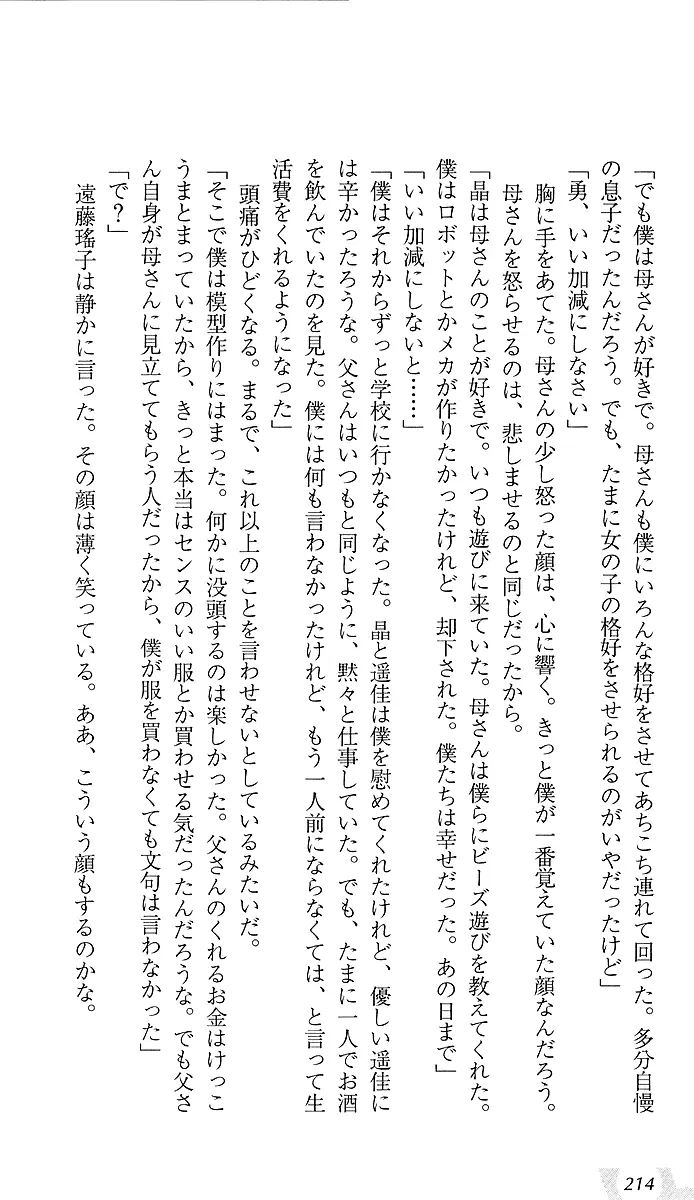 「でも僕は母さんが好きで。母さんも僕にいろんな格好をさせてあちこち連れて回った。多分自慢
の息子だったんだろう。でも、たまに女の子の格好をさせられるのがいやだったけど」
「勇、いい加減にしなさい」
胸に手をあてた。母さんの少し怒った顔は、心に響く。きっと僕が一番覚えていた顔なんだろう。
母さんを怒らせるのは、悲しませるのと同じだったから。
「晶は母さんのことが好きで。いつも遊びに来ていた。母さんは僕らにビーズ遊びを教えてくれた。
僕はロボットとかメカが作りたかったけれど、却下された。僕たちは幸せだった。あの日まで」
「いい加減にしないと……」
「僕はそれからずっと学校に行かなくなった。晶と遥佳は僕を慰めてくれたけれど、優しい遥佳に
は辛かったろうな。父さんはいつもと同じように、黙々と仕事していた。でも、たまに一人でお酒
を飲んでいたのを見た。僕には何も言わなかったけれど、もう一人前にならなくては、と言って生
活費をくれるようになった」
頭痛がひどくなる。まるで、これ以上のことを言わせないとしているみたいだ。
「そこで僕は模型作りにはまった。何かに没頭するのは楽しかった。父さんのくれるお金はけっこ
うまとまっていたから、きっと本当はセンスのいい服とか買わせる気だったんだろうな。でも父さ
ん自身が母さんに見立ててもらう人だったから、僕が服を買わなくても文句は言わなかった」
「で？」
遠藤瑤子は静かに言った。その顔は薄く笑っている。ああ、こういう顔もするのかな。
214